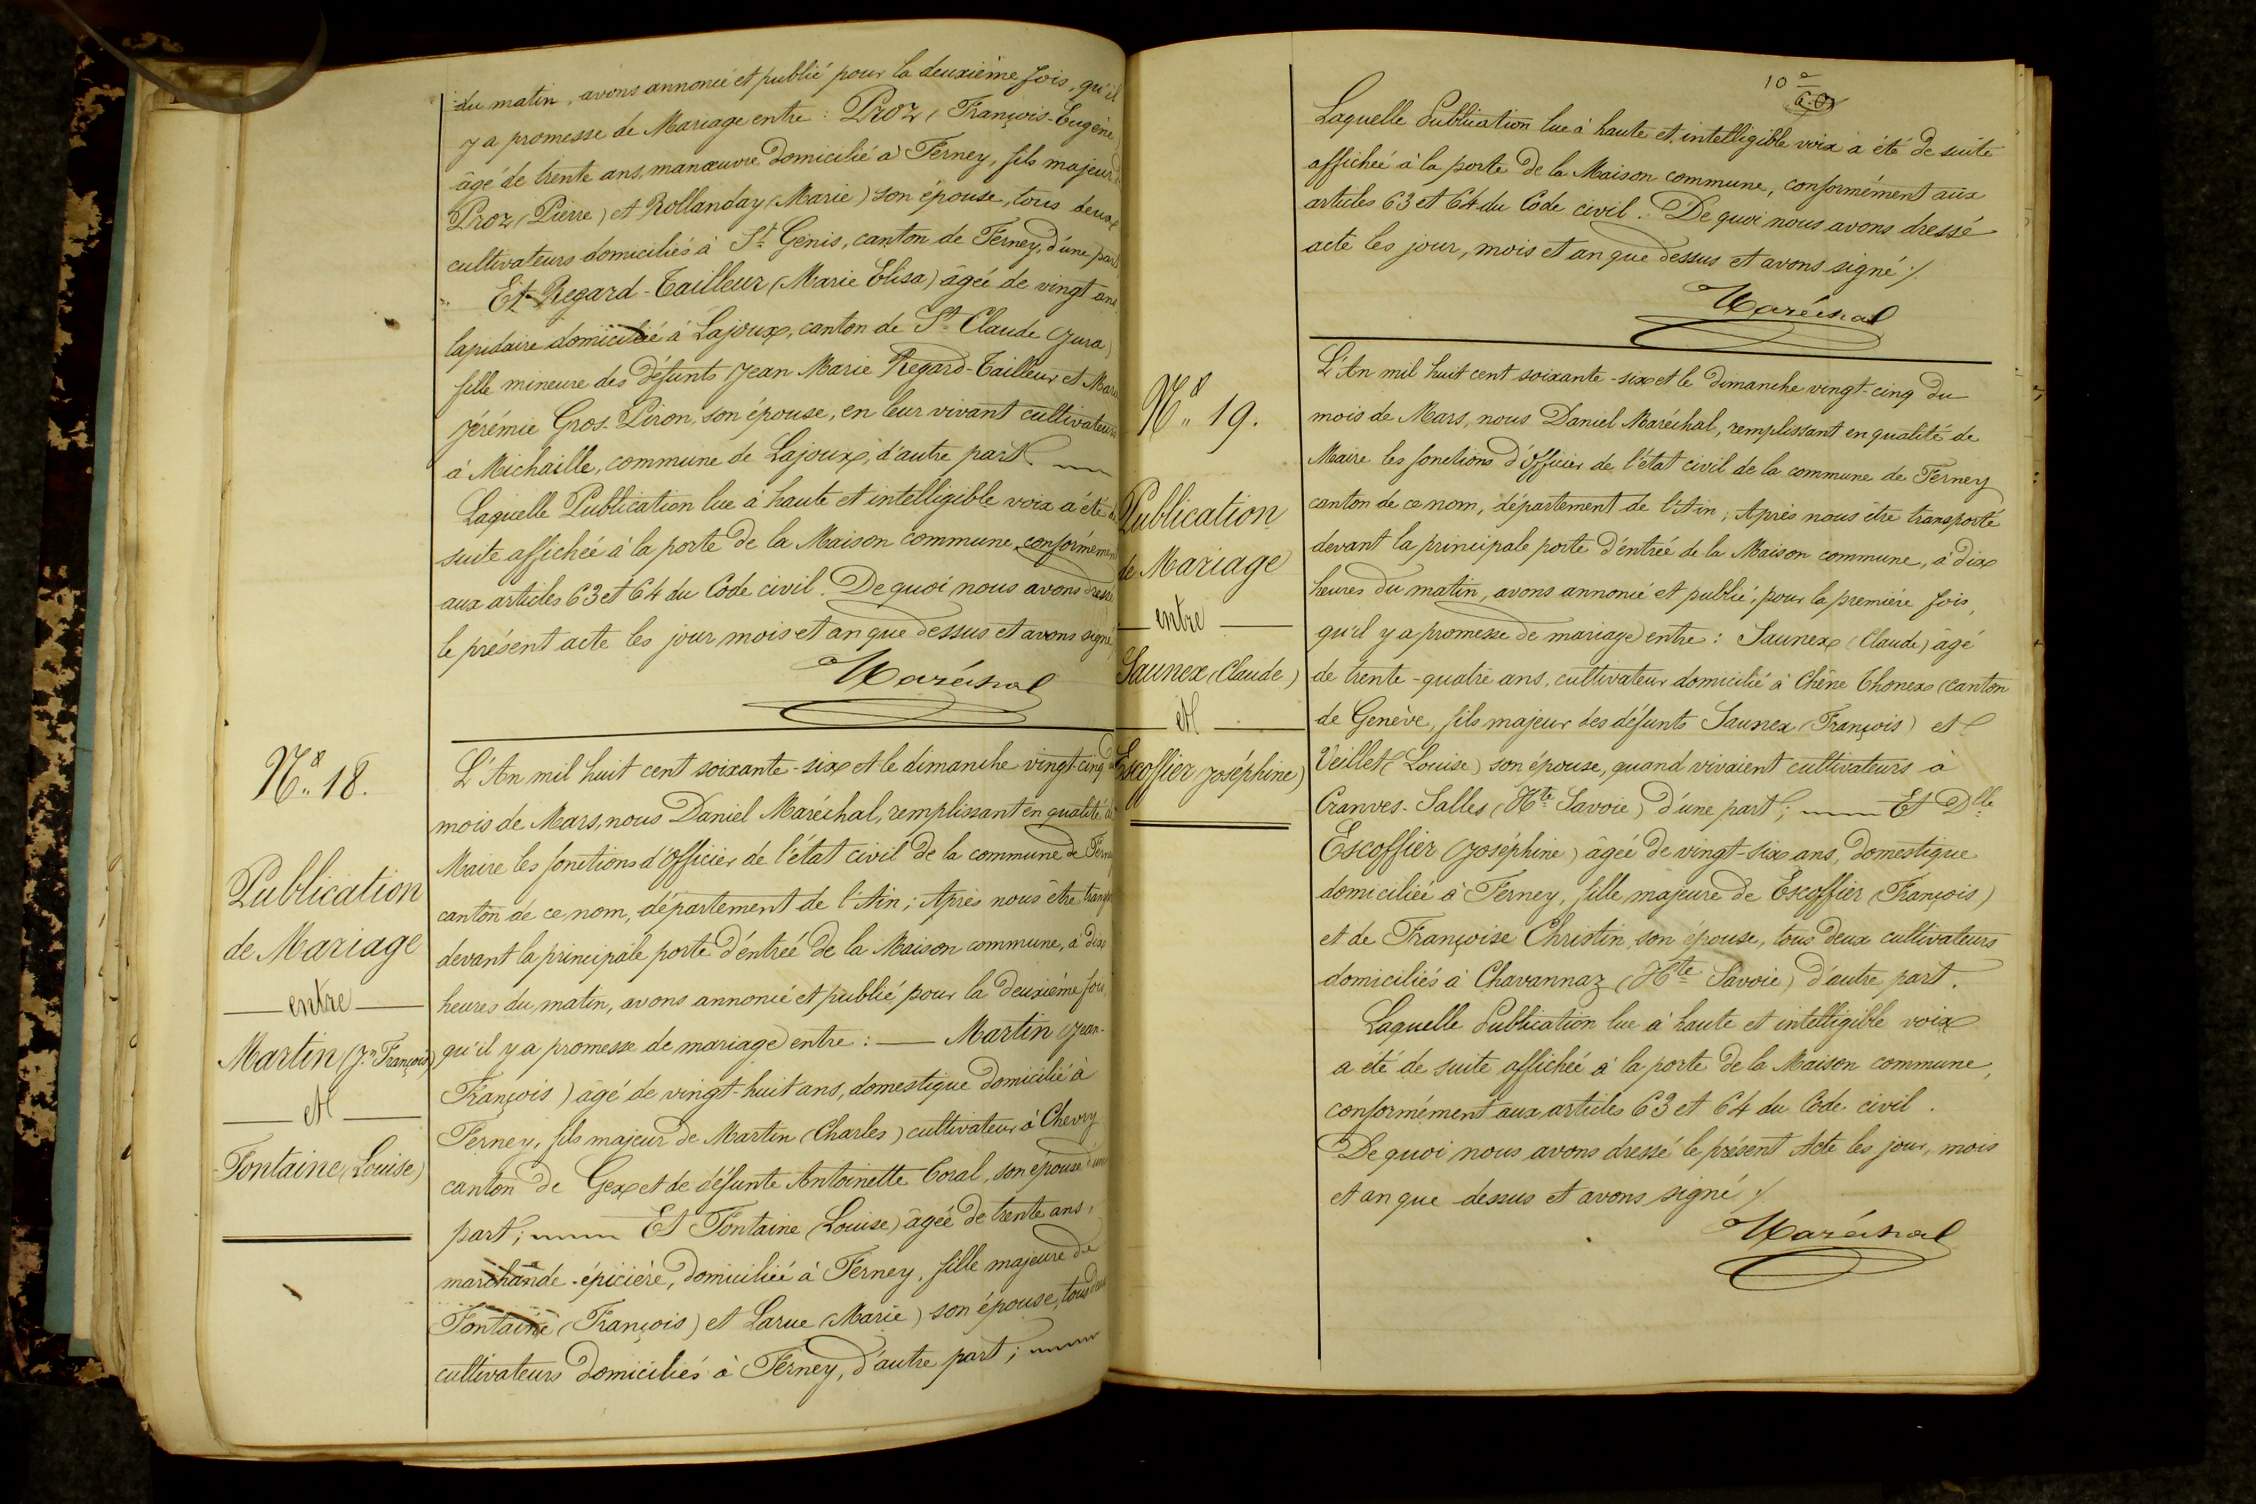 du matin, avons annoncé et publié pour la deuxième fois, qu'il
y a promesse de Mariage entre : Proz (François-Eugène)
âgé de trente ans, manœuvre domicilié à Ferney, fils majeur de
Proz (Pierre) et Rollanday (Marie) son épouse, tous deux
cultivateurs domiciliés à St. Genis, canton de Ferney, d'une part
Et Regard-Tailleur (Marie Elisa) âgée de vingt ans
lapidaire domiciliée à Lajoux, canton de St. Claude (Jura)
fille mineure des défunts Jean Marie Regard-Tailleur et Marie
Jérémie Gros-Piron, son épouse, en leur vivant cultivateurs
à Michaille, commune de Lajoux, d'autre part.
Laquelle Publication lue à haute et intelligible voix a été de
suite affichée à la porte de la Maison commune, conformément
aux articles 63 et 64 du Code civil. De quoi nous avons dressé
le présent acte les jour mois et an que dessus et avons signé
Maréchal
No. 18.
Publication
de Mariage
entre
Martin (Jn. François)
et
Fontaine (Louise)
L'An mil huit cent soixante-six et le dimanche vingt-cinq du
mois de Mars, nous Daniel Maréchal, remplissant en qualité de
Maire les fonctions d'Officier de l'état civil de la commune de Ferney
canton de ce nom, département de l'Ain ; Après nous être transporté
devant la principale porte d'entrée de la Maison commune, à dix
heures du matin, avons annoncé et publié pour la deuxième fois,
qu'il y a promesse de mariage entre : — Martin (Jean-
François) âgé de vingt-huit ans, domestique domicilié à
Ferney, fils majeur de Martin (Charles) cultivateur à Chevry
canton de Gex et de défunte Antoinette Coral, son épouse d'une
part ; Et Fontaine (Louise) âgée de trente ans,
marchande-épicière, domiciliée à Ferney, fille majeure de
Fontaine (François) et Larue (Marie) son épouse, tous deux
cultivateurs domiciliés à Ferney, d'autre part ;
10e
Laquelle Publication lue à haute et intelligible voix a été de suite
affichée à la porte de la Maison commune, conformément aux
articles 63 et 64 du Code civil. De quoi nous avons dressé
acte les jour, mois et an que dessus et avons signé ./.
Maréchal
No. 19.
Publication
de Mariage
entre
Saunex (Claude)
et
Escoffier (Joséphine)
L'An mil huit cent soixante-six et le dimanche vingt-cinq du
mois de Mars, nous Daniel Maréchal, remplissant en qualité de
Maire les fonctions d'Officier de l'état civil de la commune de Ferney
canton de ce nom, département de l'Ain ; Après nous être transporté
devant la principale porte d'entrée de la Maison commune, à dix
heures du matin, avons annoncé et publié, pour la première fois,
qu'il y a promesse de mariage entre : Saunex (Claude) âgé
de trente-quatre ans, cultivateur domicilié à Chêne Thonex (canton
de Genève, fils majeur des défunts Saunex (François) et
Veillet (Louise) son épouse, quand vivaient cultivateurs à
Cranves-Salles (Hte. Savoie) d'une part ; Et Dlle.
Escoffier (Joséphine) âgée de vingt-six ans, domestique
domiciliée à Ferney, fille majeure de Escoffier (François)
et de Françoise Christin, son épouse, tous deux cultivateurs
domiciliés à Chavannaz (Hte. Savoie) d'autre part.
Laquelle Publication lue à haute et intelligible voix
a été de suite affichée à la porte de la Maison commune,
conformément aux articles 63 et 64 du Code civil.
De quoi nous avons dressé le présent Acte les jour, mois
et an que dessus et avons signé ./.
Maréchal